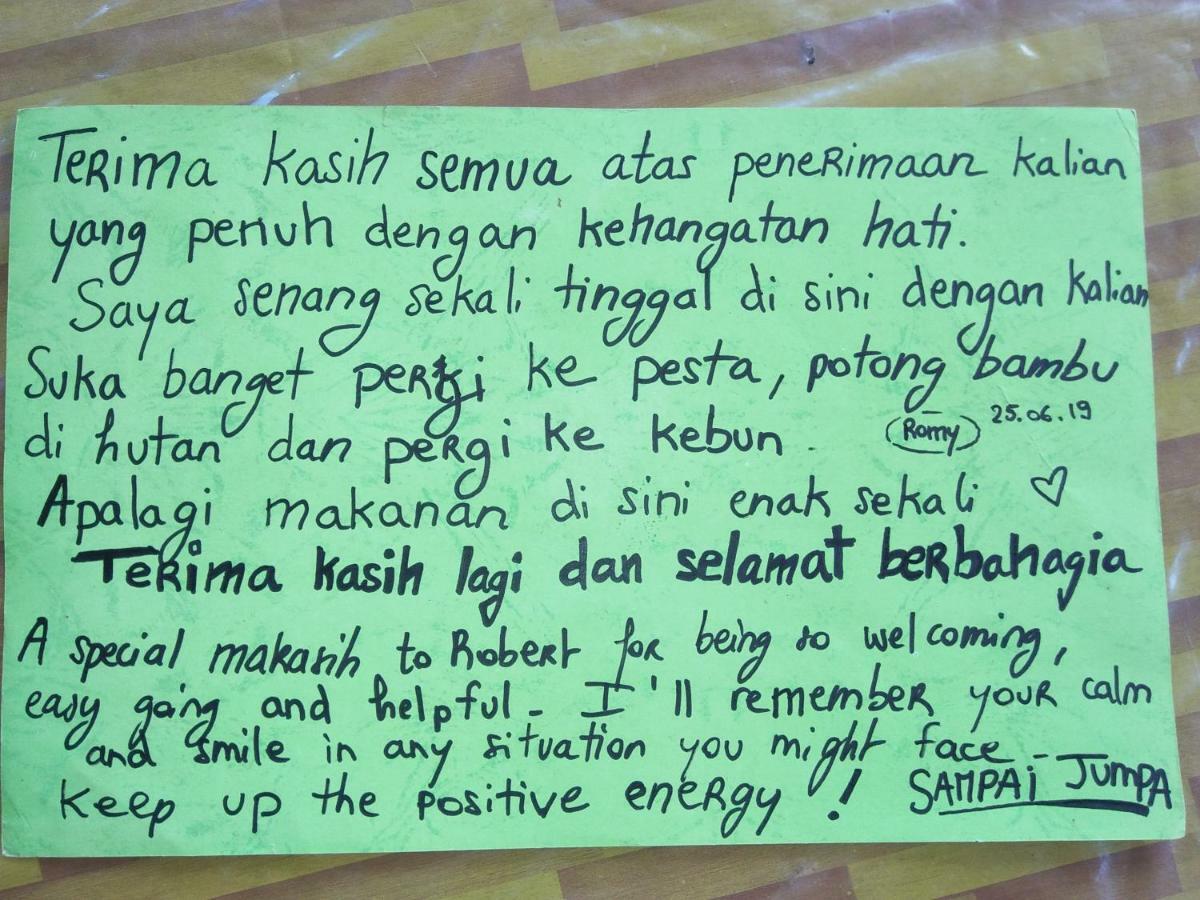 Terima kasih semua atas penerimaan kalian
yang penuh dengan kehangatan hati.
Saya senang sekali tinggal di sini dengan kalian
Suka banget pergi ke pesta, potong bambu
di hutan dan pergi ke kebun.
Romy 25.06.19
Apalagi makanan di sini enak sekali ♡
Terima kasih lagi dan selamat berbahagia
A special makasih to Robert for being so welcoming,
easy going and helpful. I'll remember your calm
and smile in any situation you might face.
Keep up the positive energy !
SAMPAi JUMPA